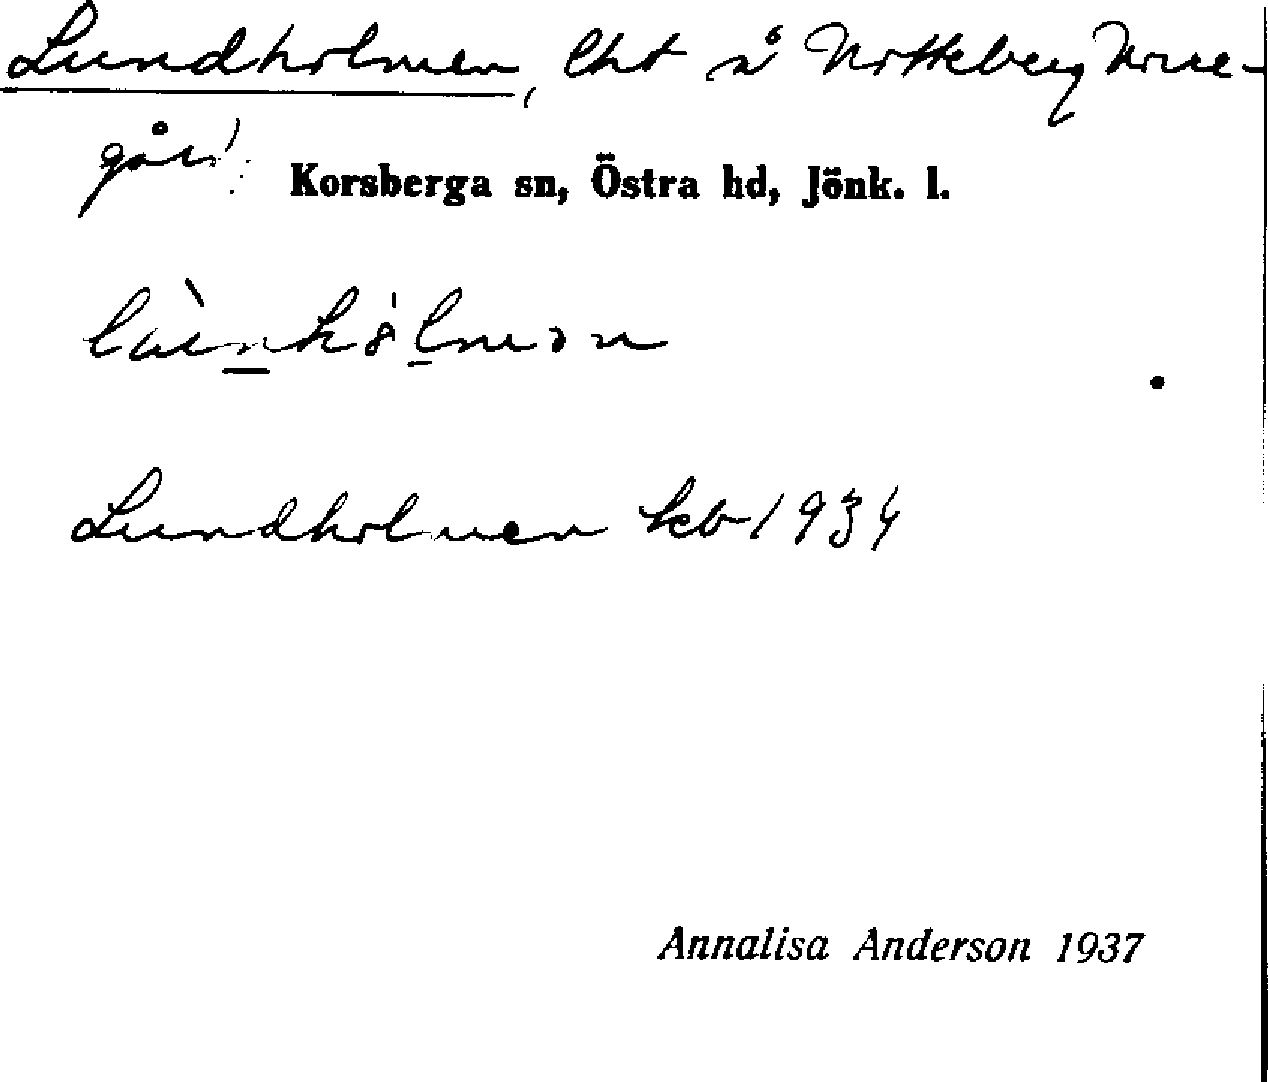 Lundholmen, lht å Notteberg Norre-
gård
Korsberga sn, Östra hd, Jönk. l.
Lundholmen kb 1934
Annalisa Anderson 1937